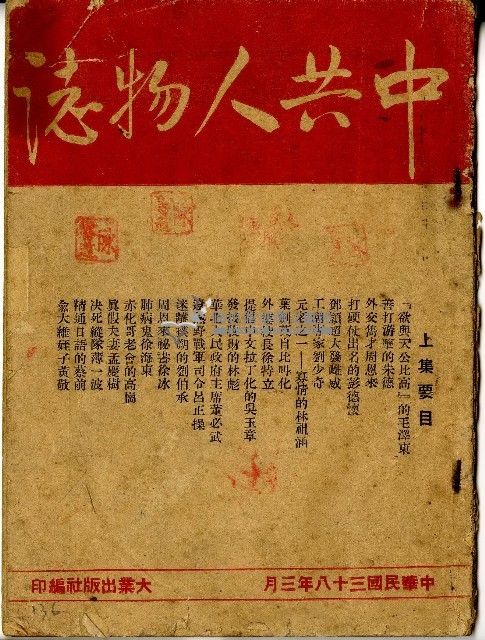 中共人物誌
上集要目
「欲與天公比高」的毛澤東
善打游擊的朱德
外交雋才周恩來
打硬仗出名的彭德懷
鄧穎超大發雌威
工運專家劉少奇
元老之一——寡情的林祖涵
葉劍英自比叫化
外婆家長徐特立
提倡中文拉丁化的吳玉章
發國難財的林彪
華北人民政府主席董必武
野戰軍司令呂正操
迷離撲朔的劉伯承
周恩來秘書徐冰
肺病鬼徐海東
赤化哥老會的高崗
真假夫妻孟慶樹
決死縱隊薄一波
精通日語的蔡前
俞大維姪子黃敬
中華民國三十八年三月
大業出版社編印
136